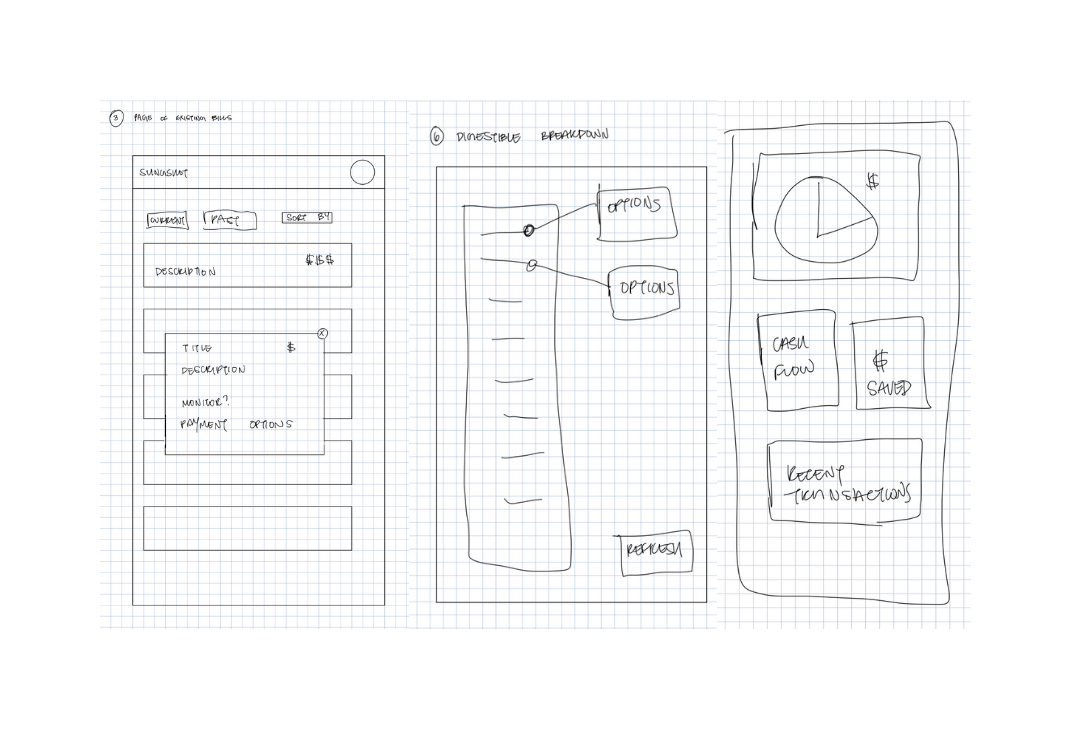 3 PAGE OF EXISTING BILLS
SLINGSHOT
CURRENT PAST SORT BY
$$$
DESCRIPTION
X
TITLE $
DESCRIPTION
MONITOR?
PAYMENT OPTIONS
6 DIGESTIBLE BREAKDOWN
OPTIONS
OPTIONS
REFRESH
$
CASH
FLOW
$
SAVED
RECENT
TRANSACTIONS